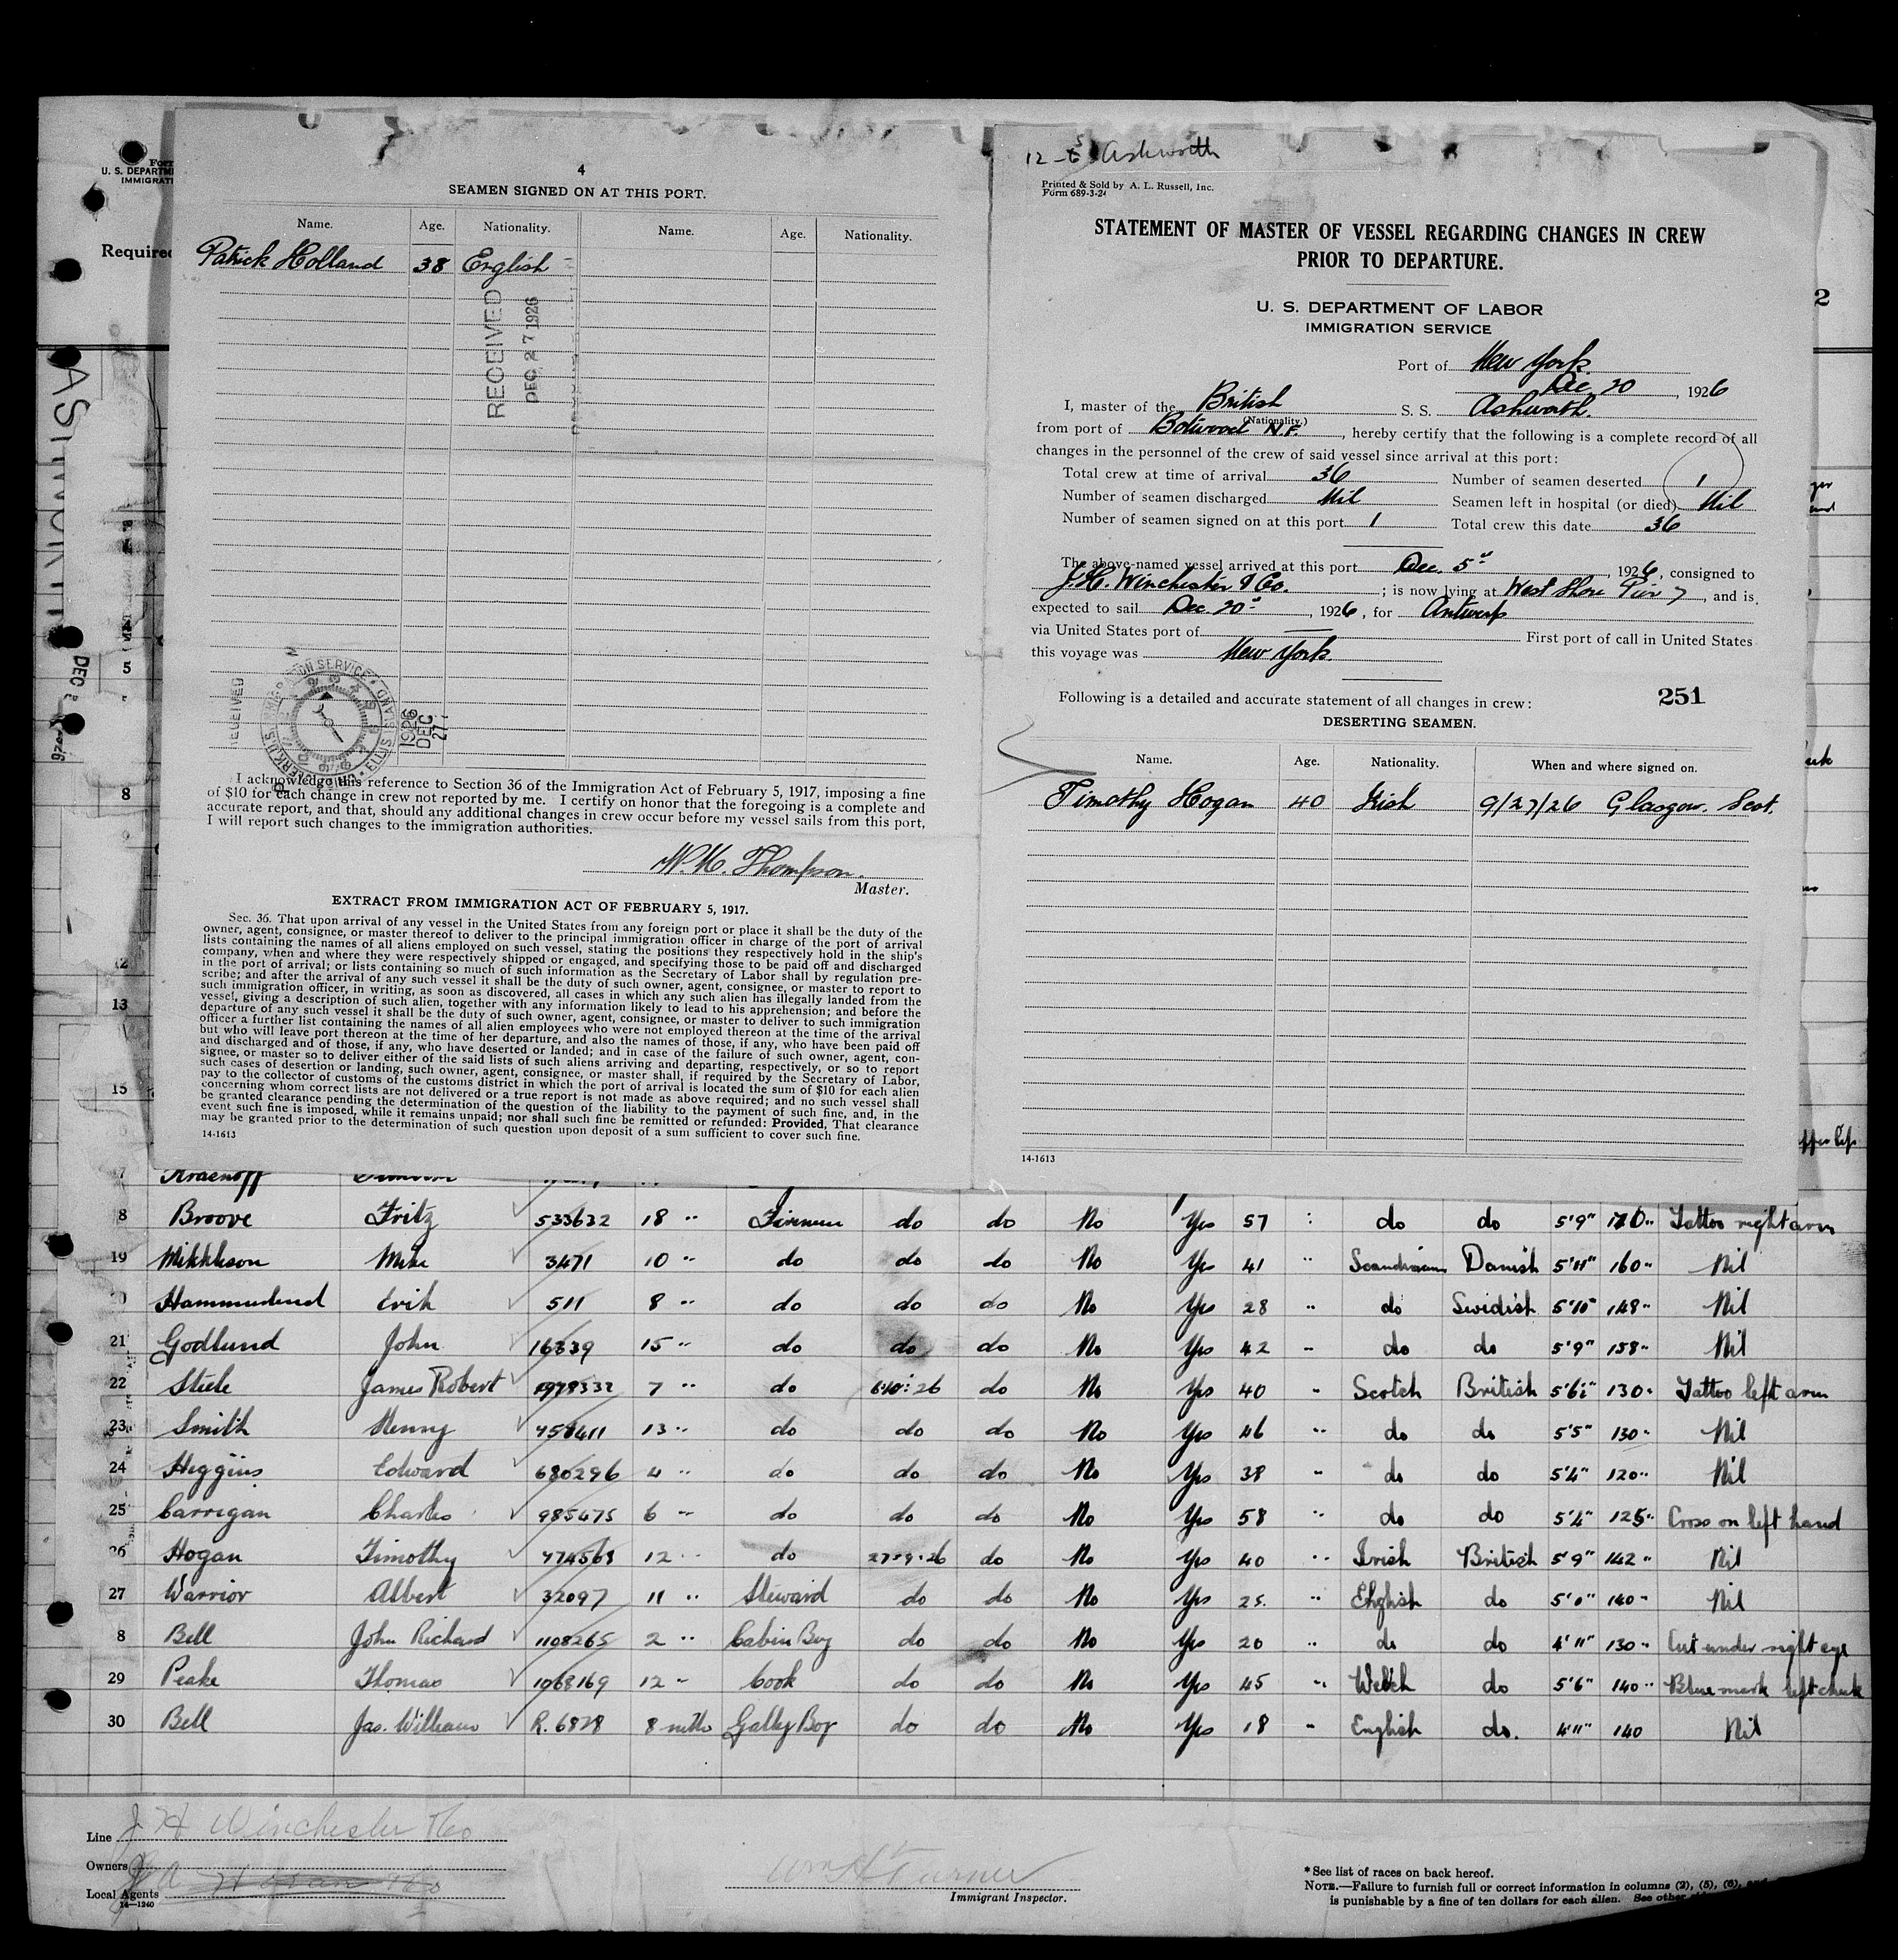 4
SEAMEN SIGNED ON AT THIS PORT.
Name. Age. Nationality. Name. Age. Nationality.
Patrick Holland 38 English
RECEIVED
DEC 27 1926
RECEIVED
ELLIS ISLAND
1926
DEC
27
I acknowledge this reference to Section 36 of the Immigration Act of February 5, 1917, imposing a fine
of $10 for each change in crew not reported by me. I certify on honor that the foregoing is a complete and
accurate report, and that, should any additional changes in crew occur before my vessel sails from this port,
I will report such changes to the immigration authorities.
W. M. Thompson.
Master.
EXTRACT FROM IMMIGRATION ACT OF FEBRUARY 5, 1917.
Sec. 36. That upon arrival of any vessel in the United States from any foreign port or place it shall be the duty of the
owner, agent, consignee, or master thereof to deliver to the principal immigration officer in charge of the port of arrival
lists containing the names of all aliens employed on such vessel, stating the positions they respectively hold in the ship's
company, when and where they were respectively shipped or engaged, and specifying those to be paid off and discharged
in the port of arrival; or lists containing so much of such information as the Secretary of Labor shall by regulation pre-
scribe; and after the arrival of any such vessel it shall be the duty of such owner, agent, consignee, or master to report to
such immigration officer, in writing, as soon as discovered, all cases in which any such alien has illegally landed from the
vessel, giving a description of such alien, together with any information likely to lead to his apprehension; and before the
departure of any such vessel it shall be the duty of such owner, agent, consignee, or master to deliver to such immigration
officer a further list containing the names of all alien employees who were not employed thereon at the time of the arrival
but who will leave port thereon at the time of her departure, and also the names of those, if any, who have been paid off
and discharged and of those, if any, who have deserted or landed; and in case of the failure of such owner, agent, con-
signee, or master so to deliver either of the said lists of such aliens arriving and departing, respectively, or so to report
such cases of desertion or landing, such owner, agent, consignee, or master shall, if required by the Secretary of Labor,
pay to the collector of customs of the customs district in which the port of arrival is located the sum of $10 for each alien
concerning whom correct lists are not delivered or a true report is not made as above required; and no such vessel shall
be granted clearance pending the determination of the question of the liability to the payment of such fine, and, in the
event such fine is imposed, while it remains unpaid; nor shall such fine be remitted or refunded: Provided, That clearance
may be granted prior to the determination of such question upon deposit of a sum sufficient to cover such fine.
14-1613
Ashworth
Printed & Sold by A. L. Russell, Inc.
Form 689-3-24
STATEMENT OF MASTER OF VESSEL REGARDING CHANGES IN CREW
PRIOR TO DEPARTURE.
U. S. DEPARTMENT OF LABOR
IMMIGRATION SERVICE
Port of New York
Dec 20, 1926
I, master of the British S. S. Ashworth.
(Nationality.)
from port of Botwood N.F., hereby certify that the following is a complete record of all
changes in the personnel of the crew of said vessel since arrival at this port:
Total crew at time of arrival 36 Number of seamen deserted 1
Number of seamen discharged Nil Seamen left in hospital (or died) Nil
Number of seamen signed on at this port 1 Total crew this date 36
The above-named vessel arrived at this port Dec. 5", 1926, consigned to
J.H. Winchester & Co. ; is now lying at West Shore Pier 7, and is
expected to sail Dec. 20", 1926, for Antwerp
via United States port of First port of call in United States
this voyage was New York.
Following is a detailed and accurate statement of all changes in crew: 251
DESERTING SEAMEN.
Name. Age. Nationality. When and where signed on.
Timothy Hogan 40 Irish 9/27/26 Glasgow. Scot.
14-1613
U. S. DEPARTM
IMMIGRATI
Required
2
5
8
12
13
15
7 Kraenoff
8 Broove Fritz 533632 18 " Fireman do do No Yes 57 : do do 5'9" 170" Tattoo right arm
19 Mikkleson Mike 3471 10 " do do do No Yes 41 " Scandinavian Danish 5'11" 160" Nil
20 Hammerlund Erik 511 8 " do do do No Yes 28 " do Swidish 5'10" 148" Nil
21 Godlund John 16339 15 " do do do No Yes 42 " do do 5'9" 158" Nil
22 Steele James Robert 7 " do 6.10.26 do No Yes 40 " Scotch British 5'6½" 130" Tattoo left arm
23 Smith Henry 13 " do do do No Yes 46 " do do 5'5" 130" Nil
24 Higgins Edward 680296 4 " do do do No Yes 38 " do do 5'4" 120" Nil
25 Carrigan Charles 985475 6 " do do do No Yes 58 " do do 5'4" 125" Cross on left hand
26 Hogan Timothy 774568 12 " do 27.9.26 do No Yes 40 " Irish British 5'9" 142" Nil
27 Warrior Albert 32097 11 " Steward do do No Yes 25. " English do 5'0" 140" Nil
8 Bell John Richard 1108265 2 " Cabin Boy do do No Yes 20 " do do 4'11" 130" Cut under right eye
29 Peake Thomas 1068169 12 " Cook do do No Yes 45 " Welch do 5'6" 140" Blue mark left cheek
30 Bell Jas. William R. 6828 8 mths Galley Boy do do No Yes 18 " English do. 4'11" 140 Nil
Line J H Winchester & Co
Owners
Local Agents
14-1240
Wm H Turner
Immigrant Inspector.
*See list of races on back hereof.
NOTE.—Failure to furnish full or correct information in columns (2), (5), (6), and
is punishable by a fine of ten dollars for each alien. See other